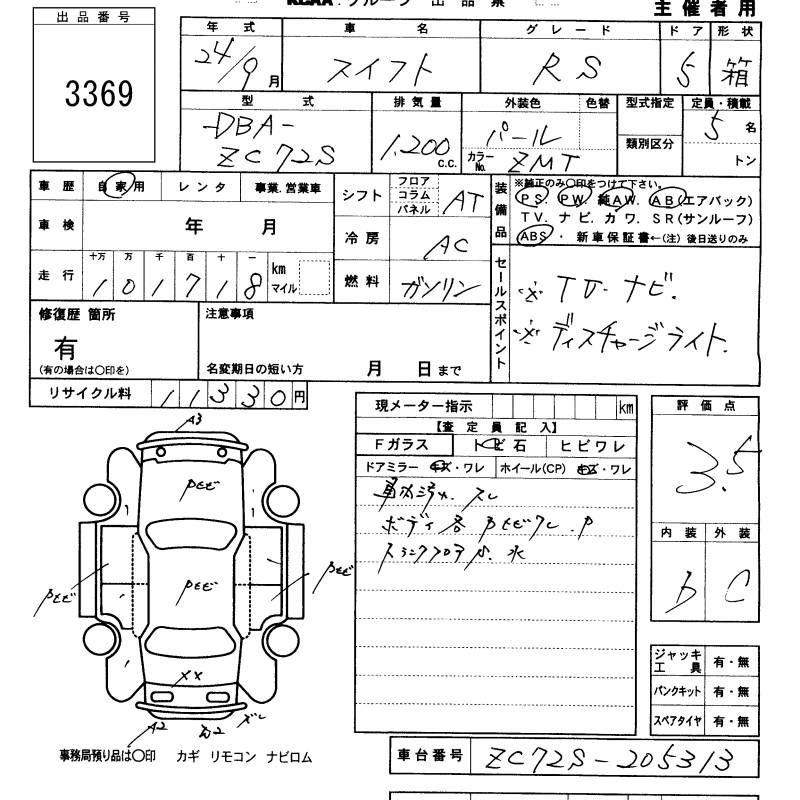 グループ 出品票
主催者用
出品番号
3369
年式 車名 グレード ドア 形状
24/9月 スイフト RS 5 箱
型式 排気量 外装色 色替 型式指定 定員・積載
-DBA-
ZC72S
1,200 c.c.
パール
カラーNo. ZMT
類別区分
5名
トン
車歴 自家用 レンタ 事業.営業車
車検 年 月
走行 十万 万 千 百 十 一
101718 km マイル
シフト フロア コラム パネル AT
冷房 AC
燃料 ガソリン
装備品
※純正のみ〇印をつけて下さい。
PS. PW. 純AW. AB(エアバック)
TV. ナビ. カワ. SR(サンルーフ)
ABS ・ 新車保証書←(注) 後日送りのみ
セールスポイント
※ TV・ナビ.
※ ディスチャージライト.
修復歴 箇所
有
(有の場合は〇印を)
注意事項
名変期日の短い方 月 日まで
リサイクル料 11330円
現メーター指示 km
【査定員記入】
Fガラス トビ石 ヒビワレ
ドアミラー キズ・ワレ ホイール(CP) キズ・ワレ
ボディ各
評価点
3.5
内装 外装
b C
ジャッキ 工具 有・無
パンクキット 有・無
スペアタイヤ 有・無
A3
XX
A2
事務局預り品は〇印 カギ リモコン ナビロム
車台番号 ZC72S-205313